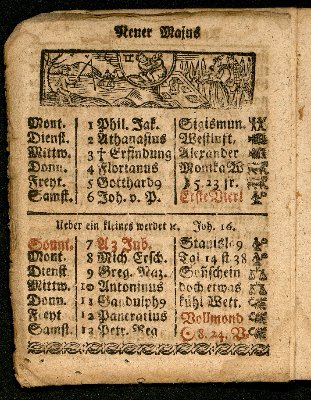 Neuer Majus
Mont. 1 Phil. Jak. Sigismun.
Dienst. 2 Athanasius Westluft.
Mittw. 3 † Erfindung Alexander
Donn. 4 Florianus Monika W
Freyt. 5 Gotthard9 5. 23 fr.
Samst. 6 Joh. v. P. Erste Viertl
Ueber ein kleines werdet ꝛc. Joh. 16.
Sonnt. 7 A3 Jub. Stanisl9
Mont. 8 Mich Ersch. Tal 14 st 38
Dienst 9 Greg. Naz. Soñschein
Mittw. 10 Antoninus doch etwas
Donn. 11 Gandulph9 kühl Wett.
Freyt 12 Pancratius Vollmond
Samst. 13 Petr. Reg 8. 24. V.